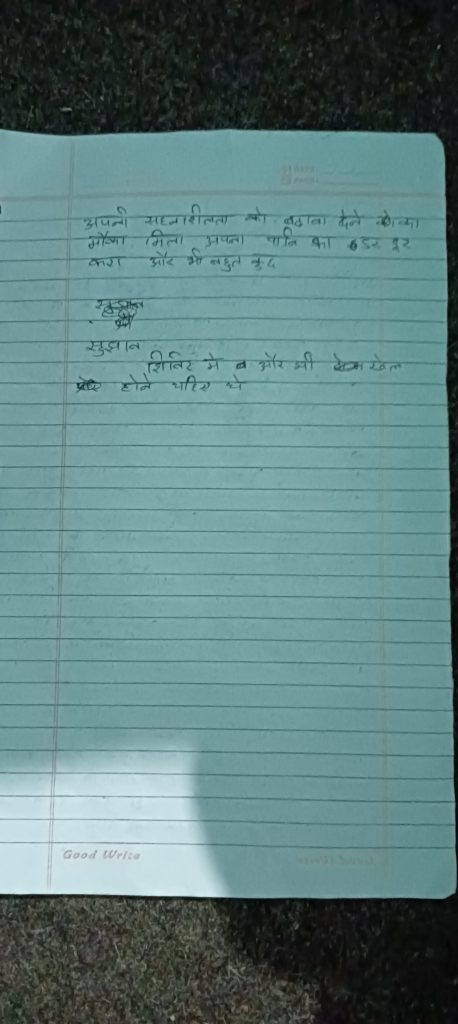 अपनी सहनाशीलता को बढ़ावा देने का
मौका मिला अपना पानि का डर दूर
करा और भी बहुत कुछ
सुझाव
सुझाव
शिविर मे और भी खेल
होने चहिए थे
Good Write